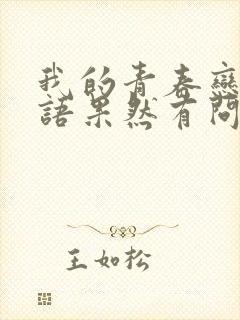 我的青春戀
語果然有問
王如松